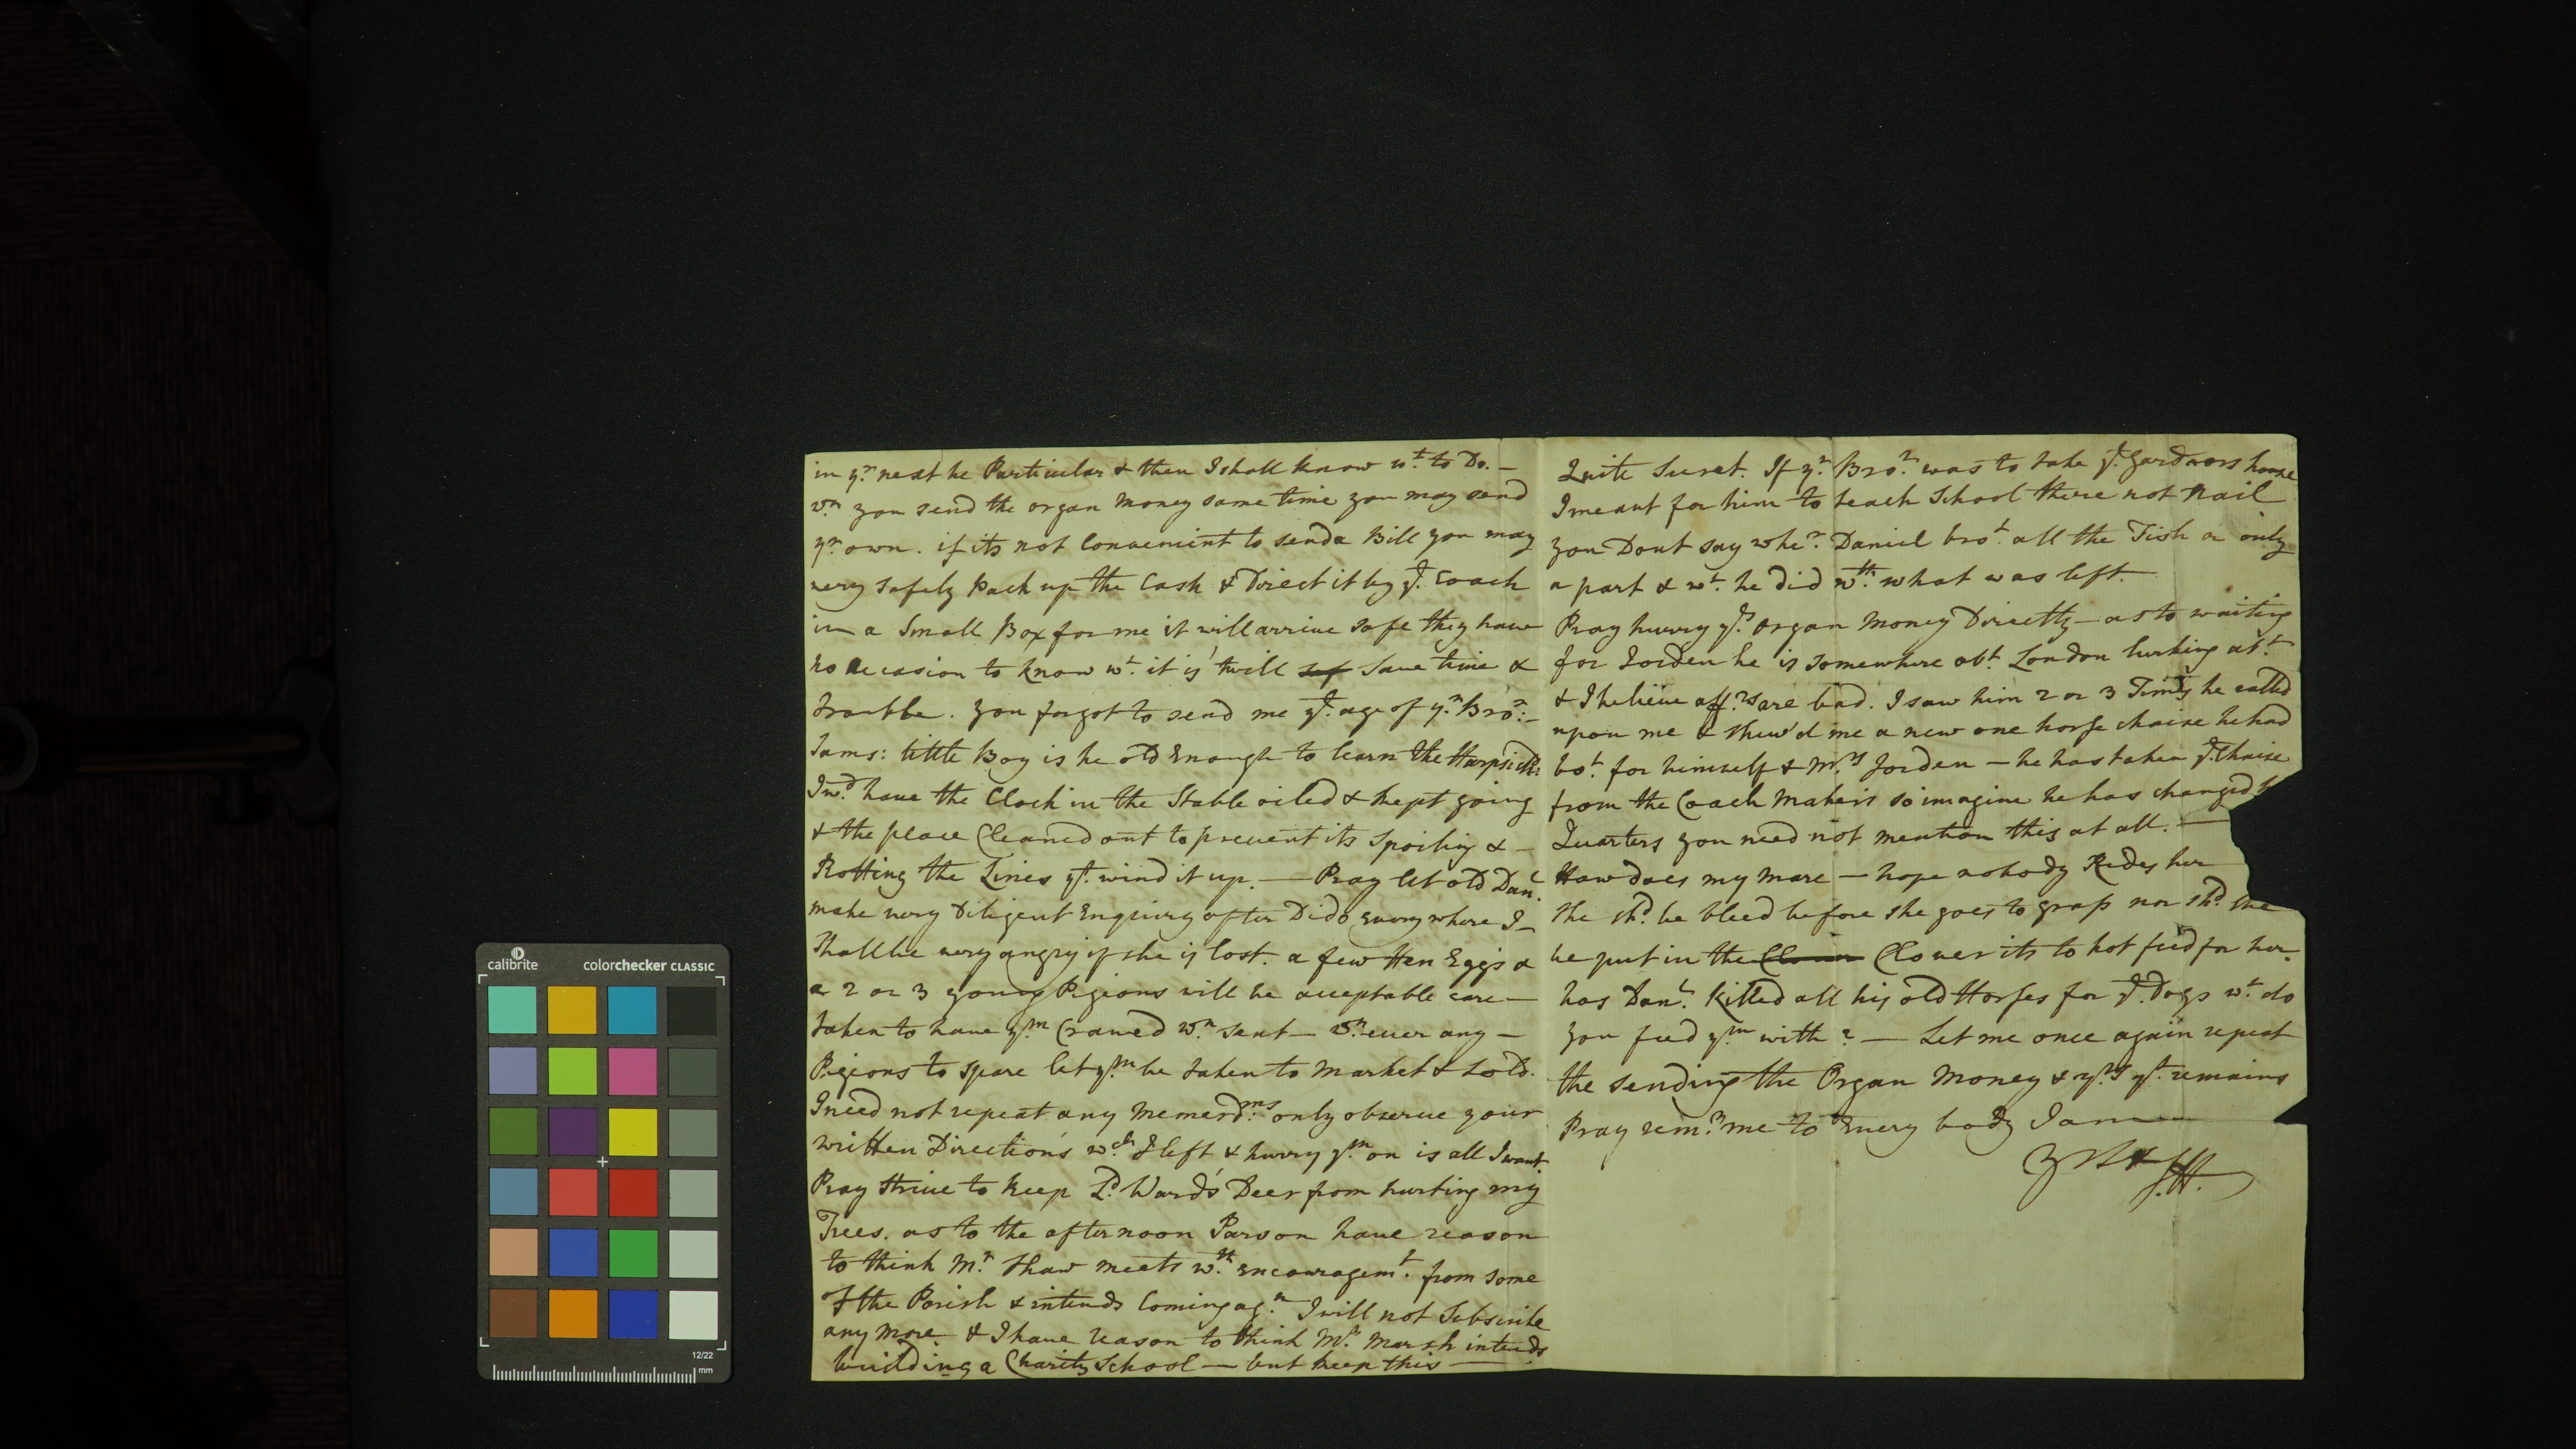 in yr. next be Particular & then I shall know wt. to Do. —
wn. you send the organ money same time you may send
yr. own. if its not Convenient to send a Bill you may
very safely Pack up the Cash & Direct it by ye. Coach
in a Small Box for me it will arrive safe they have
no occasion to know wt. it is 'twill saf Save time &
trouble. you forgot to send me ye. age of yr. Bror: —
Jams: little Boy is he old Enough to learn the Harpsich:
I wd. have the Clock in the Stable oiled & kept going
& the place Cleaned out to prevent its Spoiling & —
Rotting the Lines yt. wind it up. — Pray let old Danl.
make very Diligent Enquiry after Dido Every where I —
Shall be very angry if she is lost. a few Hen Eggs &
a 2 or 3 young Pigeons will be acceptable care —
taken to have ym. Cramed wn. sent — wn. ever any —
Pigeons to spare let ym. be taken to market & Sold.
I need not repeat any Memerdms. only observe your
written Directions wch. I left & hurry ym. on is all I want.
Pray Strive to keep Ld. Ward's Deer from hurting my
Trees. as to the afternoon Parson have reason
to think Mr. Shaw meets wth. encouragemt. from some
of the Parish & intends Coming agn. I will not Subscribe
any more. & I have reason to think Mr. Marsh intends
building a Charity School — but keep this —
Quite Secret. If yr. Bror. was to take ye. Gardners house
I meant for him to teach School there not Nail
you Dont say wher. Daniel brot. all the Fish or only
a part & wt. he did wth. what was left.
Pray hurry ye. organ Money Directly — as to waiting
for Jorden he is somewhere abt. London lurking abt.
& I believe affrs. are bad. I saw him 2 or 3 Times he called
upon me & shew'd me a new one horse chaise he had
bot. for himself & Mrs. Jorden — he has taken ye. Chaise
from the Coach Makers so imagine he has changed
Quarters you need not mention this at all. —
How does my Mare — hope nobody Rides her
She shd. be bleed before she goes to grass nor shd. she
be put in the Clover Clover its to hot feed for her.
has Danl. killed all his old Horses for ye. Dogs wt. do
you feed ym. with? — Let me once again repeat
the sending the Organ Money & yrs. yt. remains
Pray remr. me to Every body I am
J.H.
calibrite
colorchecker CLASSIC
12/22
mm